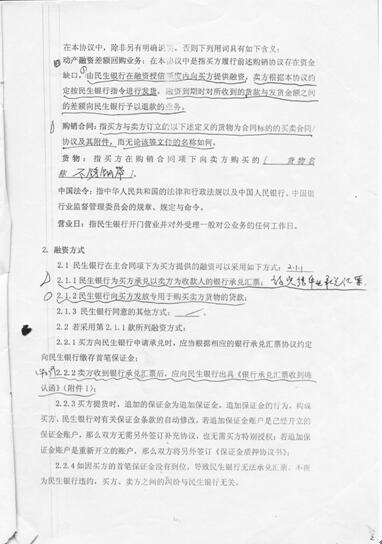 在本协议中，除非另有明确说明，否则下列用词具有如下含义：
动产融资差额回购业务：在本协议中是指买方履行前述购销协议存在资金
缺口，由民生银行在融资授信额度内向买方提供融资，卖方根据本协议约
定按民生银行指令进行发货，融资到期时对所收到的货款与发货金额之间
的差额向民生银行予以退款的业务。
购销合同：指买方与卖方订立的以下述定义的货物为合同标的的买卖合同/
协议及其附件，而无论该等文件的名称如何。
货物：指买方在购销合同项下向卖方购买的（ 货物名
称 不锈钢等 ）
中国法令：指中华人民共和国的法律和行政法规以及中国人民银行、中国银
行业监督管理委员会的规章、规定与命令。
营业日：指民生银行开门营业并对外受理一般对公业务的任何工作日。
2. 融资方式
2.1 民生银行在主合同项下为买方提供的融资可以采用如下方式：2.1.1
2.1.1 民生银行为买方承兑以卖方为收款人的银行承兑汇票；
2.1.2 民生银行向买方发放专用于购买卖方货物的贷款；
2.1.3 民生银行同意的其他方式：
2.2 若采用第 2.1.1 款所列融资方式：
2.2.1 买方向民生银行申请承兑时，应当根据相应的银行承兑汇票协议约定
向民生银行缴存首笔保证金；
2.2.2 卖方收到银行承兑汇票后，应向民生银行出具《银行承兑汇票收到确
认函》（附件 1）；
2.2.3 买方提货时，追加的保证金为追加保证金，追加保证金的行为，构成
买方、民生银行对有关保证金条款的自动修改，若追加保证金账户是已经开立的
保证金账户，那么双方无需另外签订补充协议，也无需买方特别授权；若追加保
证金账户是重新开立的账户，那么双方将另外签订《保证金质押协议书》；
2.2.4 如因买方的首笔保证金没有到位，导致民生银行无法承兑汇票，不视
为民生银行违约，买方、卖方之间的纠纷与民生银行无关。
2